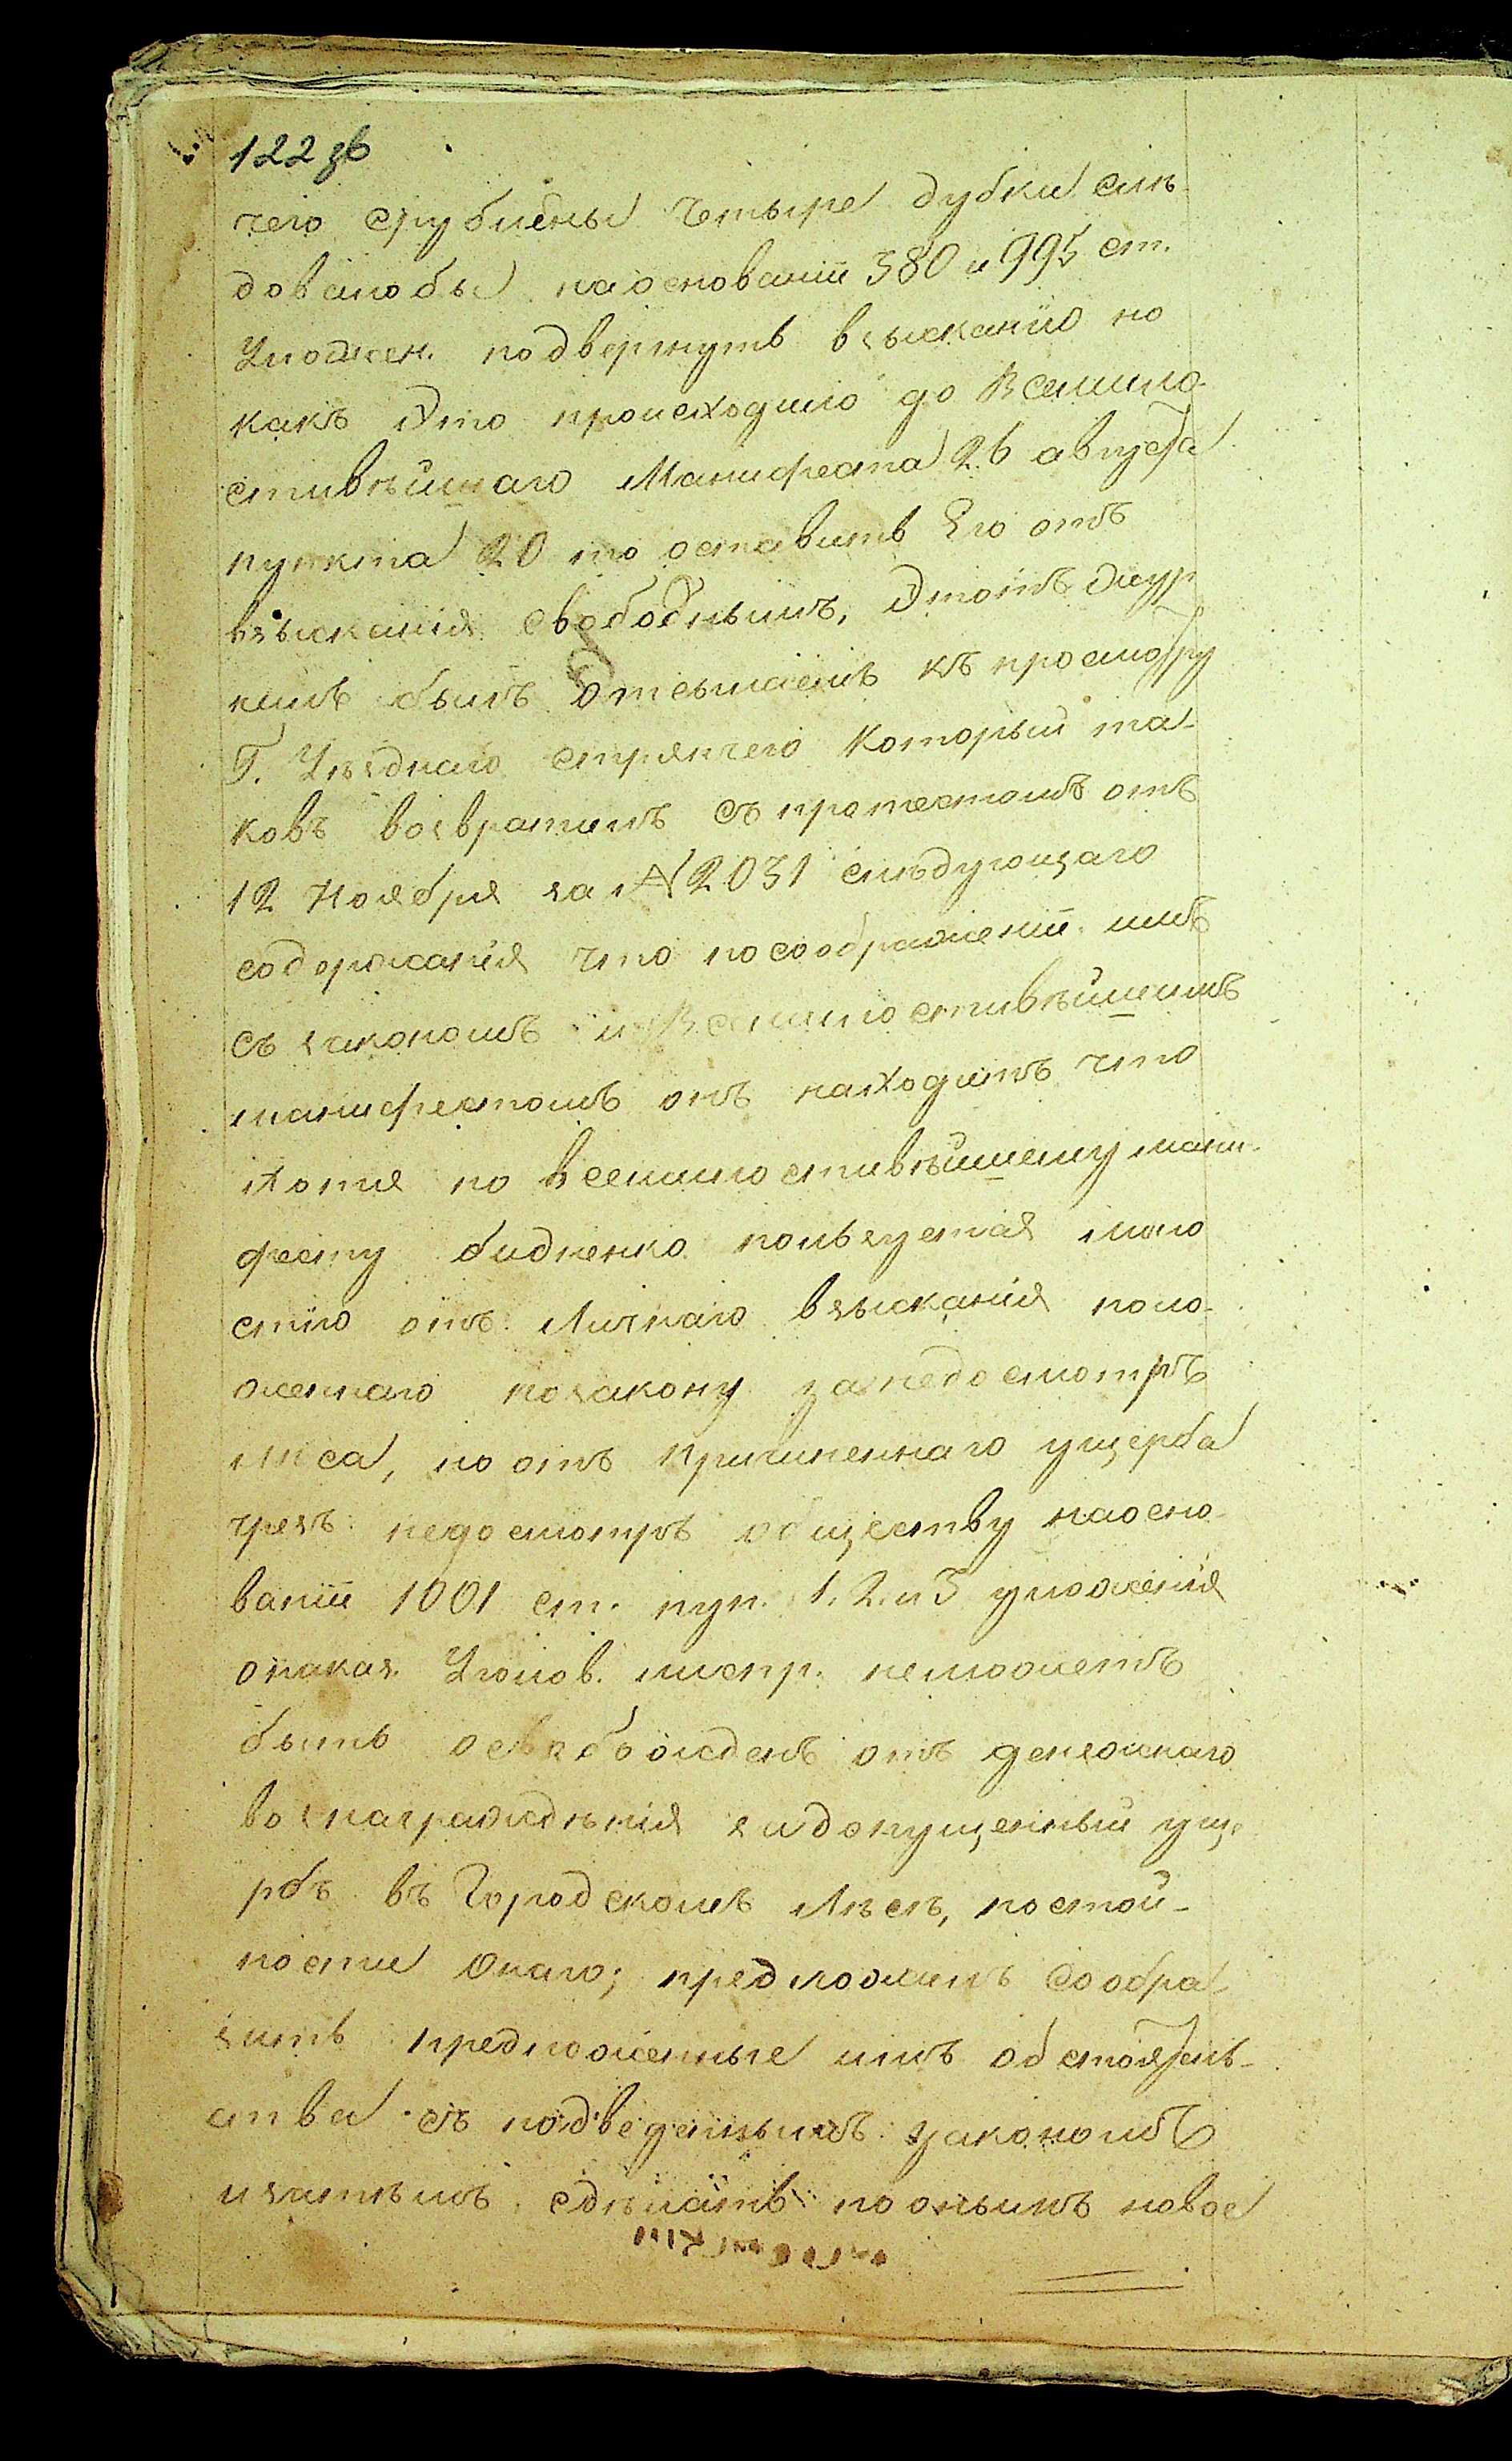 122 зв
чего срублены четыре дубка слѣ-
довалобы наоснованіи 380 и 995 ст.
Уложен. подвергнуть взысканію но
какъ Это происходило до Всемило-
стивѣйшаго Манифеста 26 августа
пункта 20 то оставить Его отъ
взысканія свободнымъ, Этотъ жур
налъ былъ отсылаемъ къ просмотру
Г. Уѣзднаго стряпчего Который та-
ковъ возвратилъ съ протестомъ отъ
12 Ноября за № 2031 слѣдующаго
содержанія что посоображеніи имъ
съ закономъ и Всемилостивѣйшимъ
манифестомъ онъ находитъ что
хотя по всемилостивѣйшему мани-
фесту бидненко пользуется мило
стію отъ Личнаго взысканія поло-
женнаго позакону занедосмотръ
лѣса, но отъ причиненнаго ущерба
чрезъ недосмотръ обществу наосно-
ваніи 1001 ст. пун. 1. 2. и 3 уложенія
онаказ. Уголов. исправ. неможетъ
быть освабожденъ отъ денежнаго
вознагражденія задопущенный уще
рбъ въ Городскомъ Лѣсѣ, постой-
ности Онаго; предложилъ Сообра-
зить предложенные имъ обстоятель-
ства съ подведеннымъ закономъ
изатѣмъ сдѣлать поонымъ новое